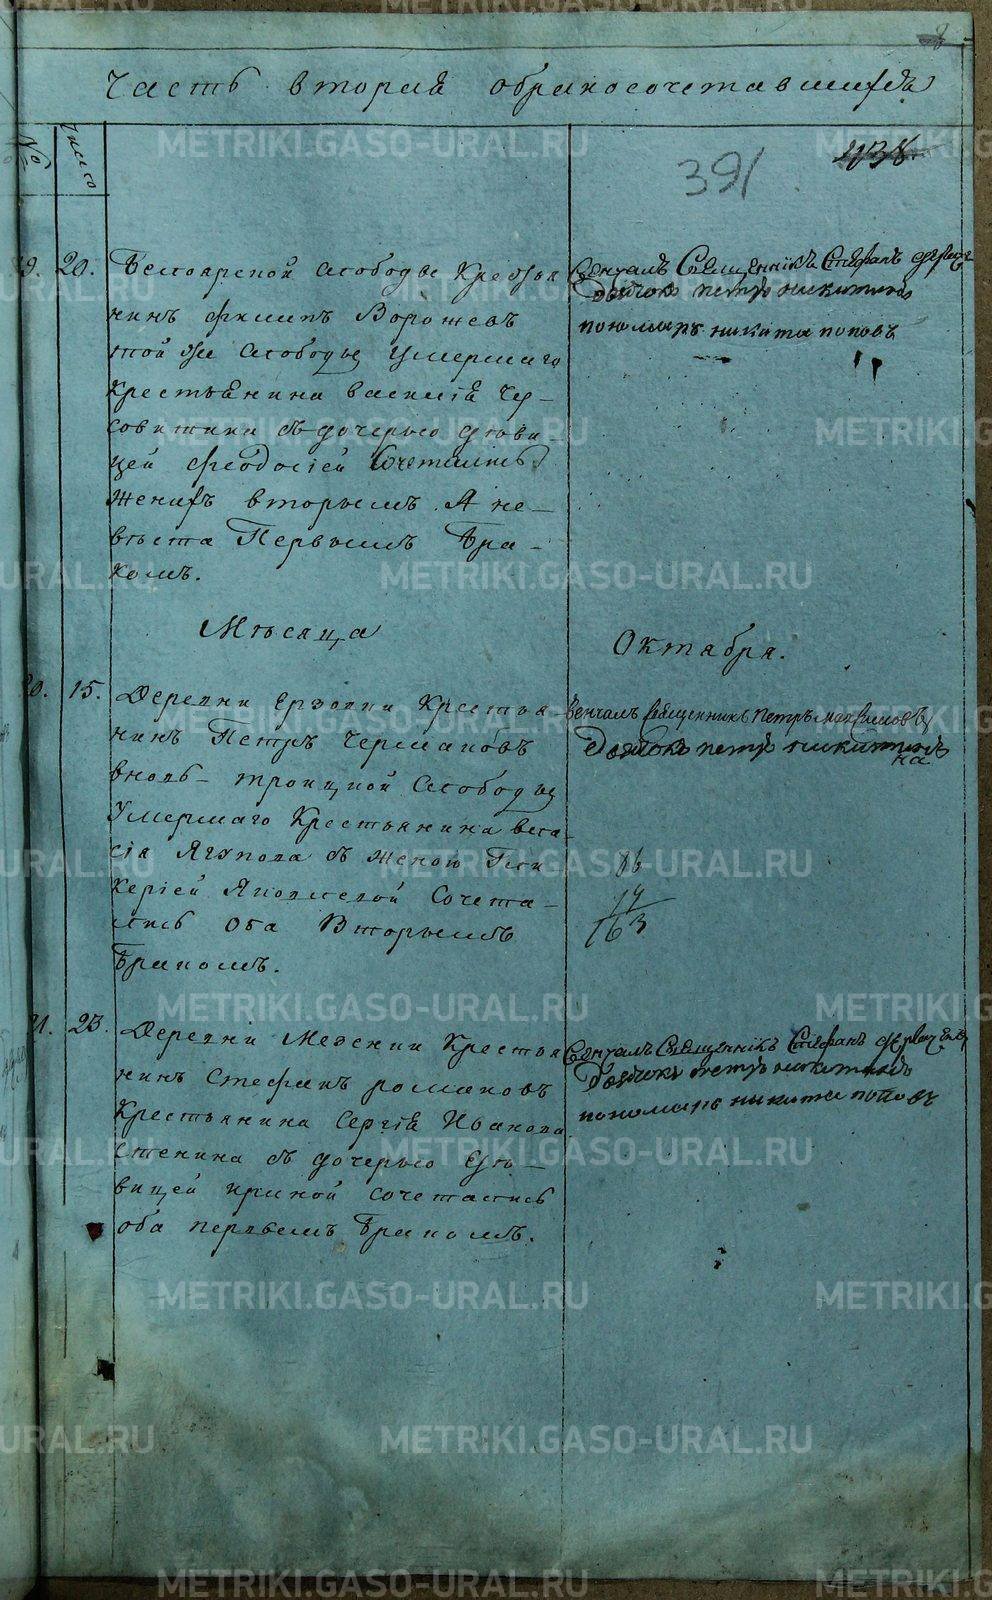 Часть вторая обракосочетавшихся
№
число
391
1138.
19. 20. Белоярской слободы Крестья
нинъ Филипъ Ворожевъ
той же слободы умершаго
Крестьянина василія Че-
совитина съ дочерью дѣви
цей Феодосіей Сочетались
Женихъ вторымъ А не-
вѣста Первымъ Бра-
комъ.
Венчалъ Священникъ Стефанъ
Дьячокъ петръ никитинъ
пономарь никита поповъ
Мѣсяца Октября.
20. 15. Деревни Ерзовки Крестья
нинъ Петръ Чермаковъ
вновь-троицкой Слободы
Умершаго Крестьянина вса-
сія Ягупова съ женою Гли
керіей Яковлевой Сочета-
лись Оба Вторымъ
Бракомъ.
Венчалъ священникъ петръ
Дьячокъ петръ никитинъ
на
86
17
163
21. 23. Деревни Мезенки Крестья
нинъ Стефанъ романовъ
Крестьянина Сергія Иванова
Стенина съ дочерью дѣ-
вицей ириной сочетались
оба первымъ Бракомъ.
Венчалъ Священникъ Стефанъ
Дьячокъ петръ никитинъ
пономарь никита поповъ
METRIKI.GASO-URAL.RU